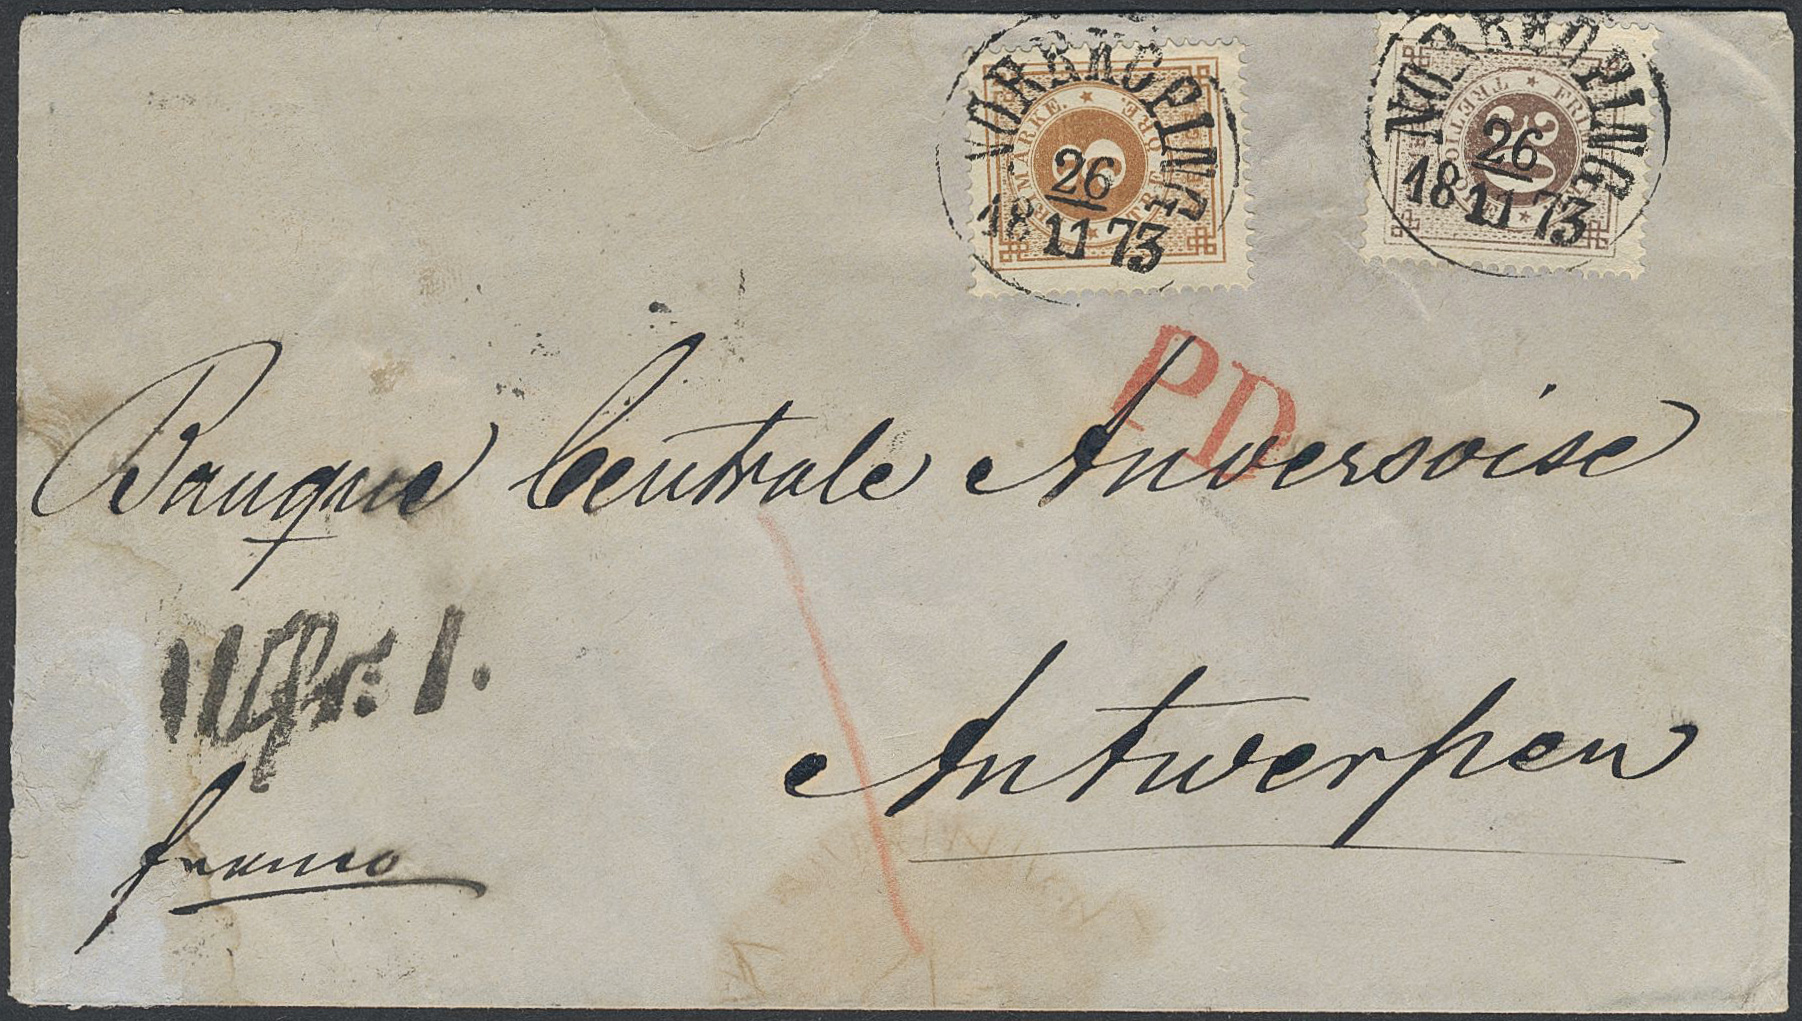 NORRKÖPING
26
18 11 73
NORRKÖPING
26
18 11 73
3
30
PD
Banque Centrale Anversoise
fr. 1.
Antwerpen
franco